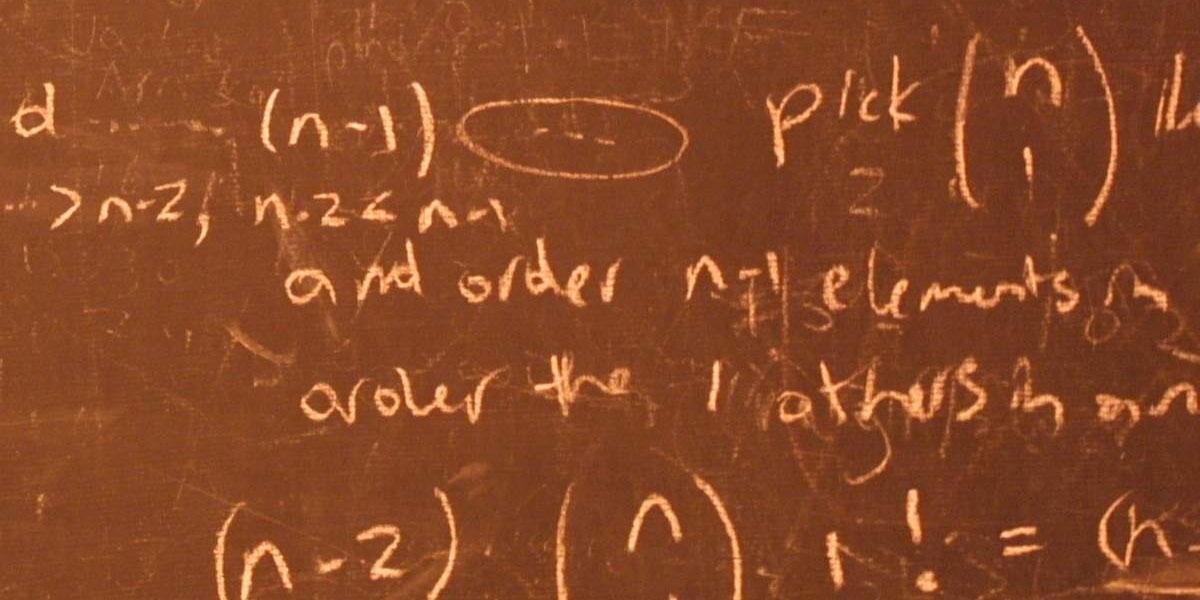 d ---- (n-1) --- pick (n 1)
>n-2, n-2< n-1
2
and order n-1 elements in
order the 1 others in an
(n-2) (n) r! = (n-